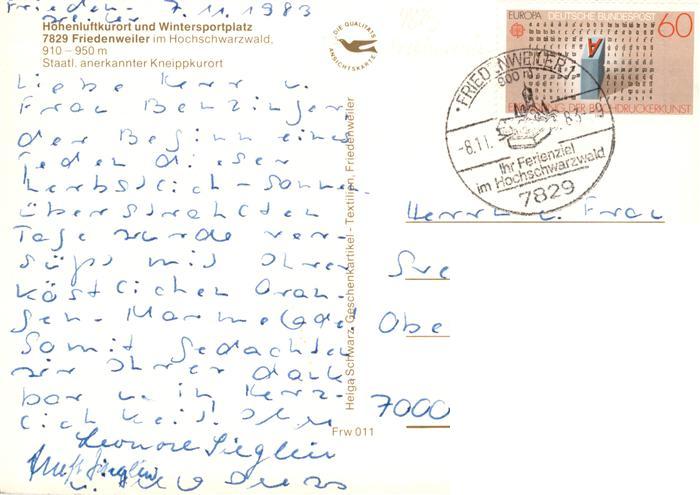 Frieden- 7.11.1983
weiler
Höhenluftkurort und Wintersportplatz
7829 Friedenweiler im Hochschwarzwald,
910–950 m
Staatl. anerkannter Kneippkurort
DIE QUALITÄTS
ANSICHTSKARTE
Liebe Herr u.
Frau Benzinger
der Beginn eines
jeden dieser
herbstlich-sonnen-
überstrahlten
Tage wurde ver-
süßt mit Ihrer
köstlichen Oran-
gen-Marmelade!
Somit gedachten
wir Ihrer dank-
bar u. in Herz-
lichkeit! Ihre
Leonore Sieglein
Sieglein
u.
Helga Schwarz, Geschenkartikel - Textilien, Friedenweiler
Frw 011
EUROPA DEUTSCHE BUNDESPOST 60
A
DER BUCHDRUCKERKUNST
FRIEDENWEILER 1
900 m
-8.11.83-9
Ihr Ferienziel
im Hochschwarzwald
7829
Herrn u. Frau
Obe
7000